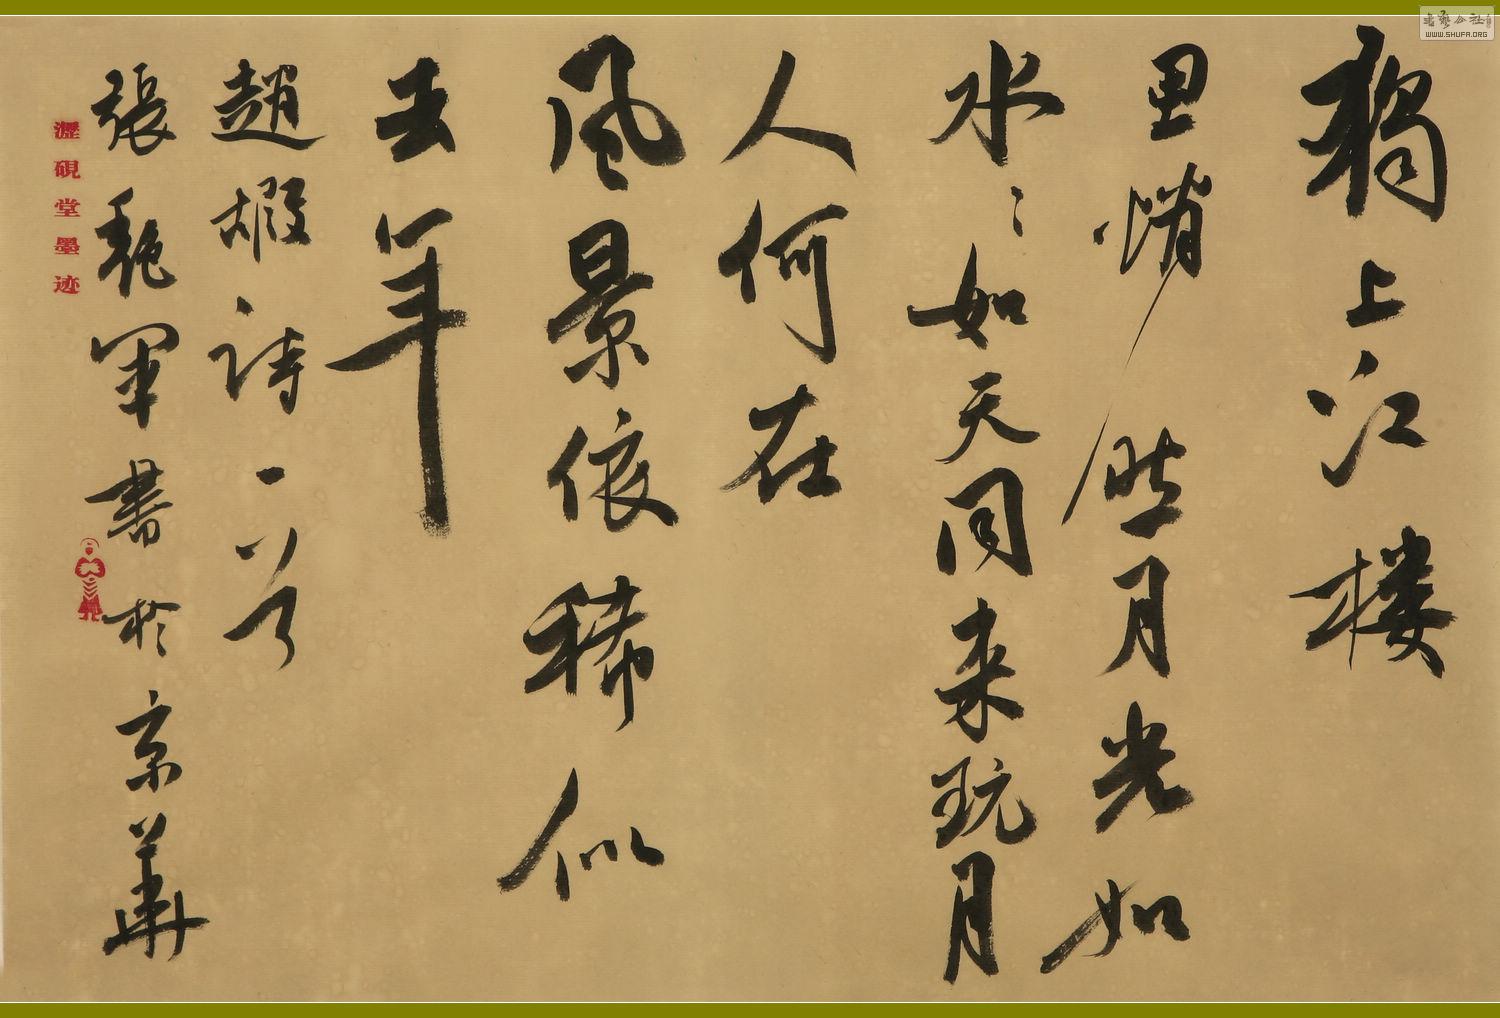 獨上江楼
思悄然月光如
水〻如天同来玩月
人何在
風景依稀似
去年
趙嘏詩一首
張軍書於京華
硯堂墨迹
书艺公社
WWW.SHUFA.ORG